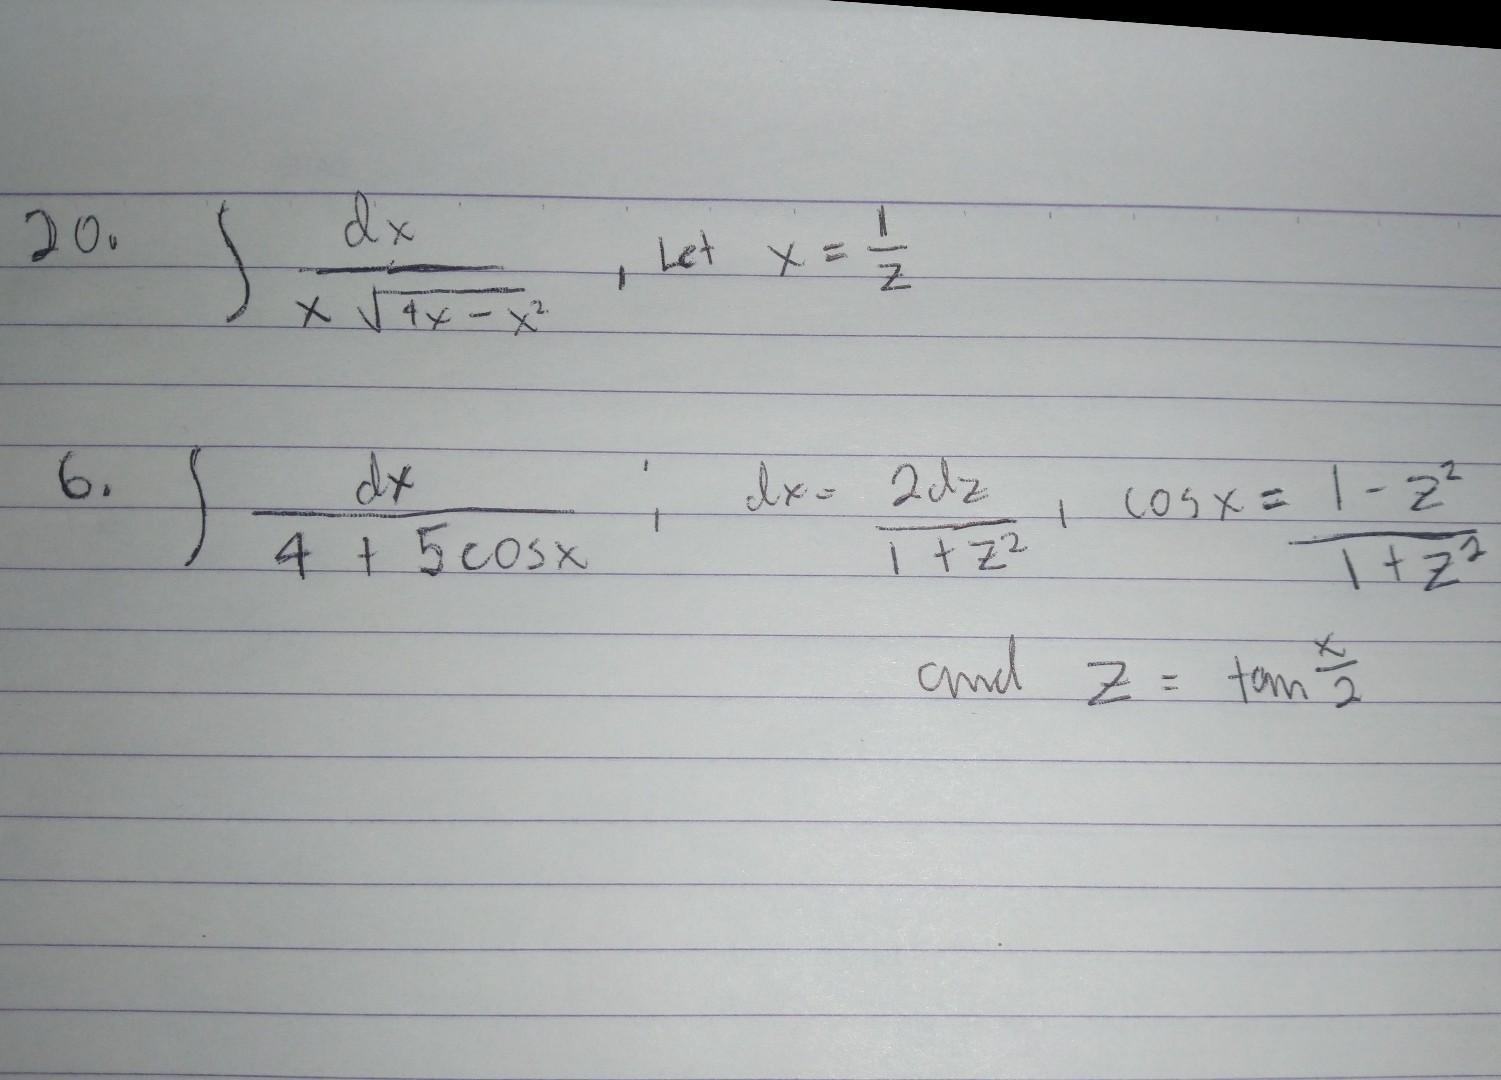 20. ∫ dx / (x √(4x - x²)) , Let x = 1/z
6. ∫ dx / (4 + 5cosx) ; dx = 2dz / (1 + z²) , cosx = (1 - z²) / (1 + z²)
and z = tan x/2